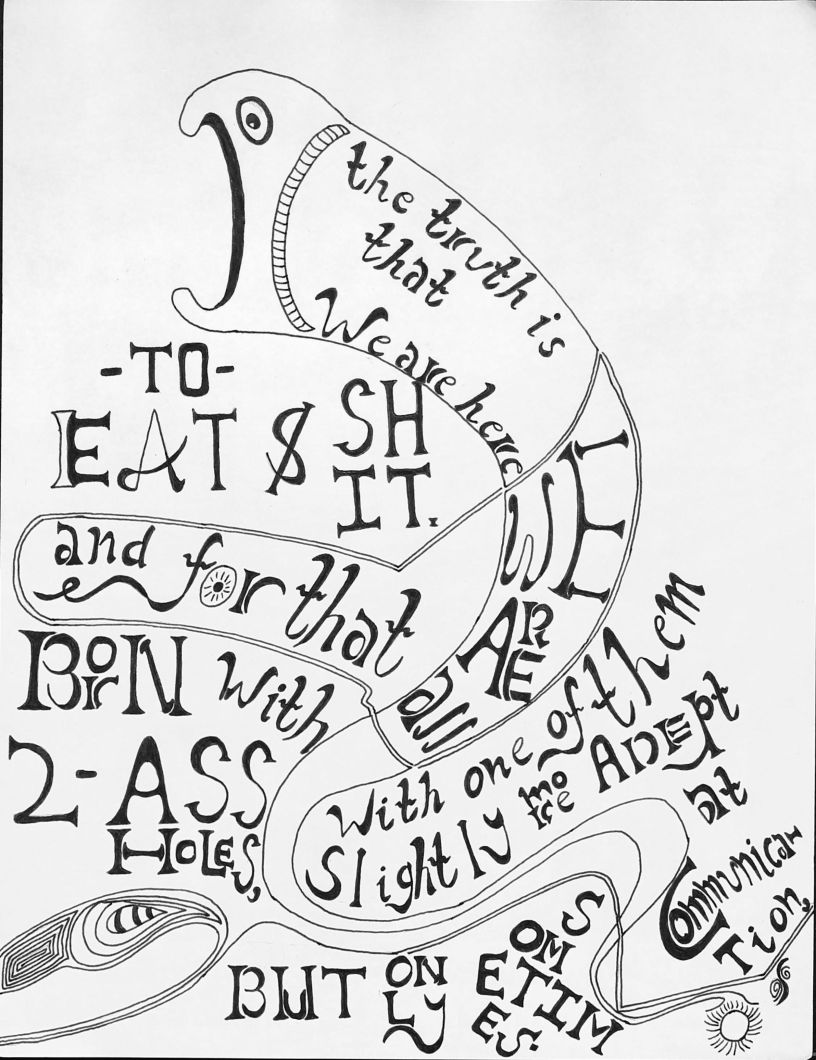 the truth is
that
We are here
-TO-
EAT $ SH
IT.
and for that
WE
ARE
all
BorN with
2-ASS
HOLES,
With one of them
Slightly more ADEPt
at
Communica-
Tion,
BUT ONLY SOMETIMES.